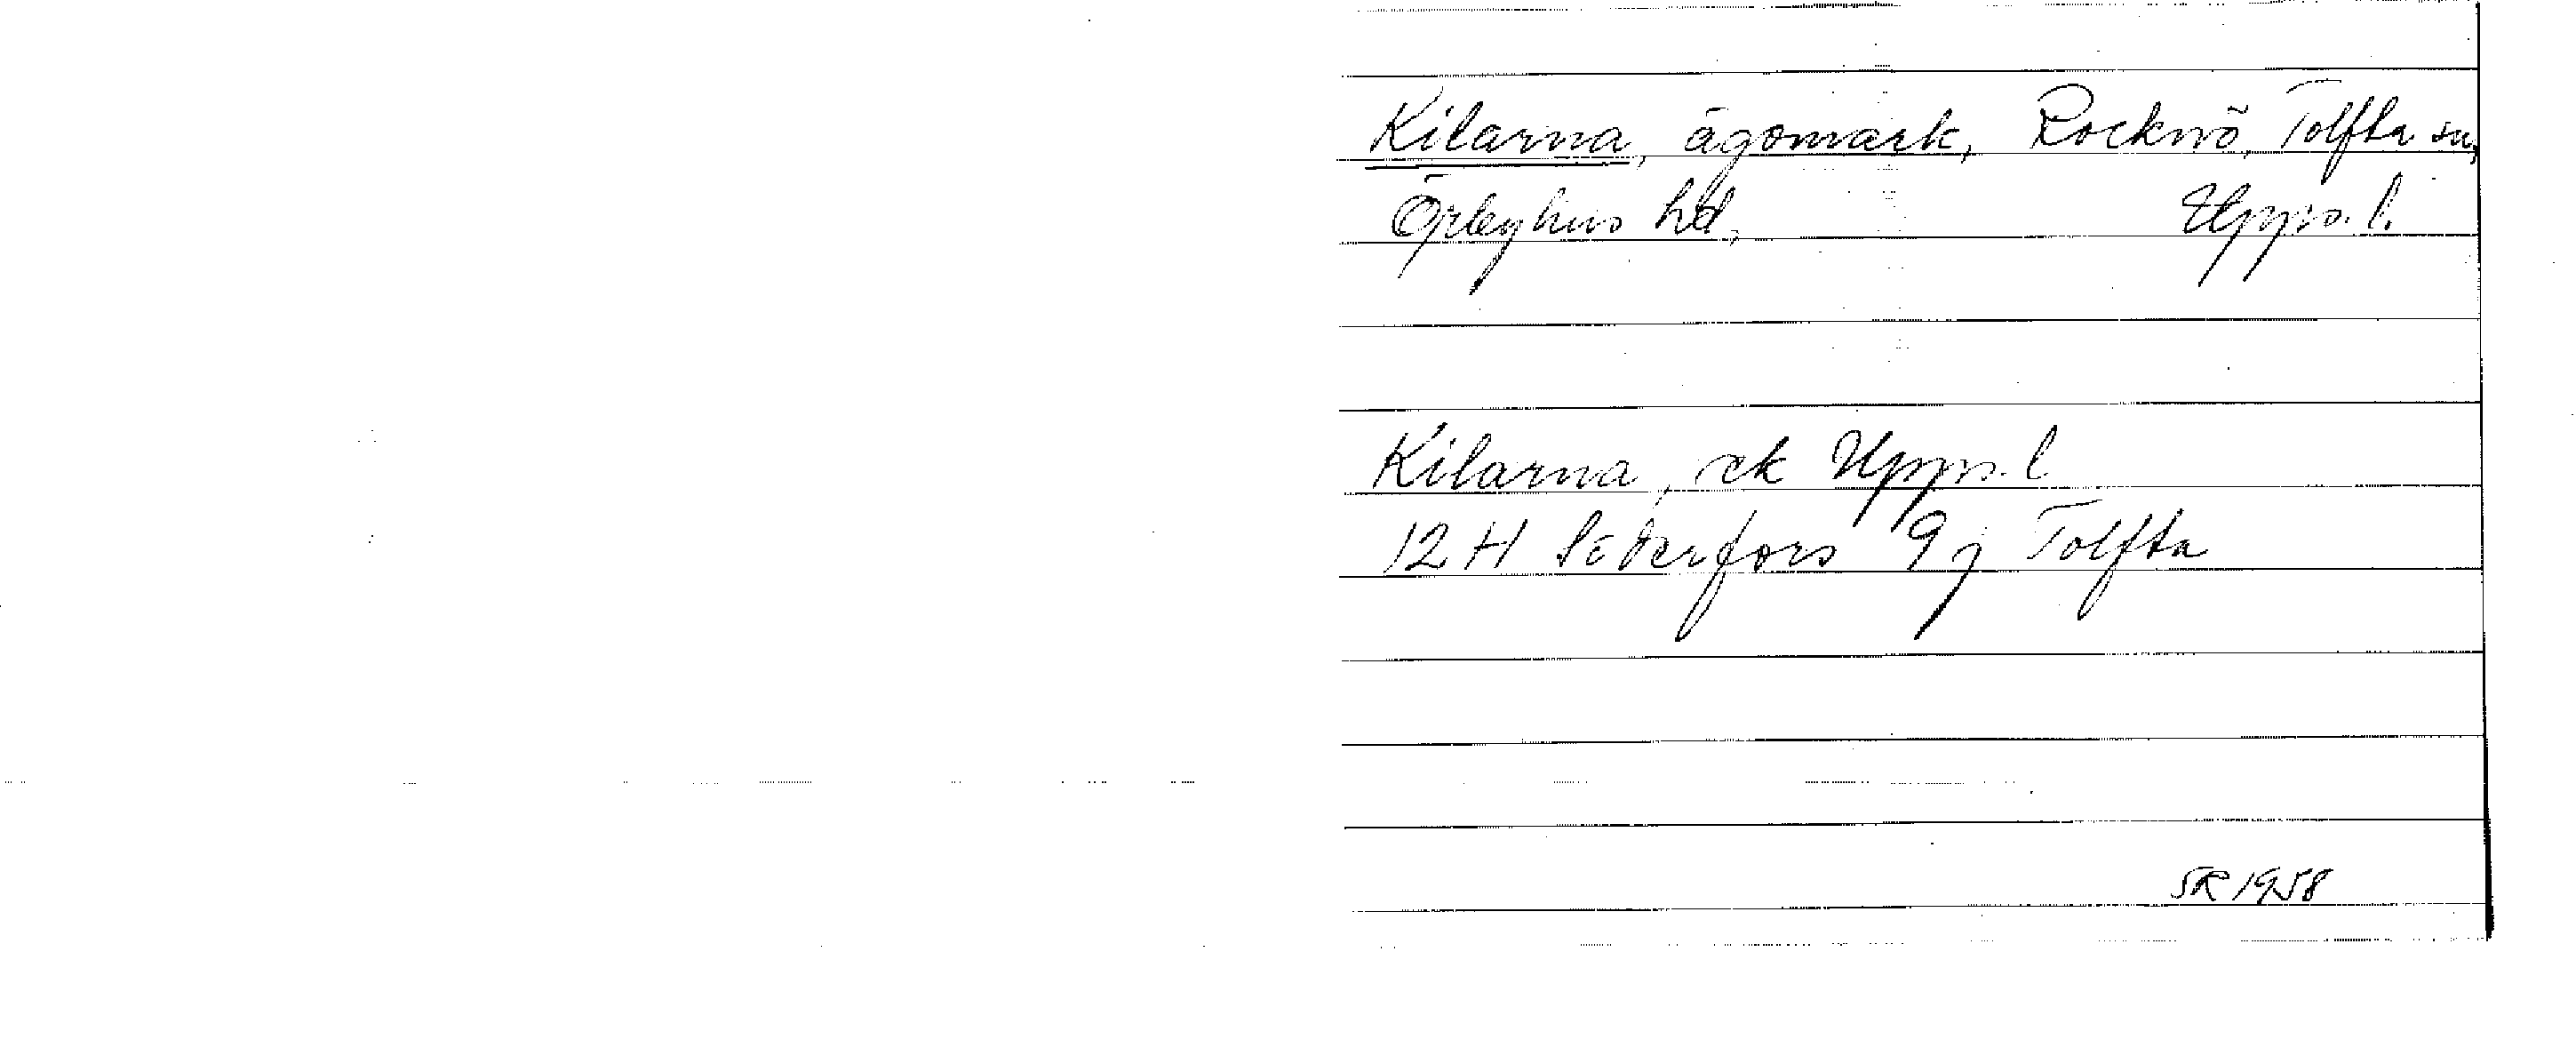 Kilarna, ägomark, Rocknö, Tolfta sn,
Örbyhus hd, Upps. l.
Kilarna, ek Upps. l
12 H Söderfors 9 j Tolfta
SR 1958